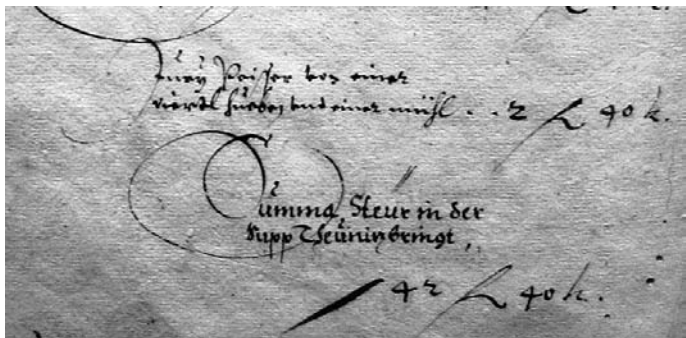 Jurÿ Peisser von einer
viertl hueben und einer mühl . . 2 f 40 k.
Summa Steur in der
Supp Theünin bringt,
42 f 40 k.